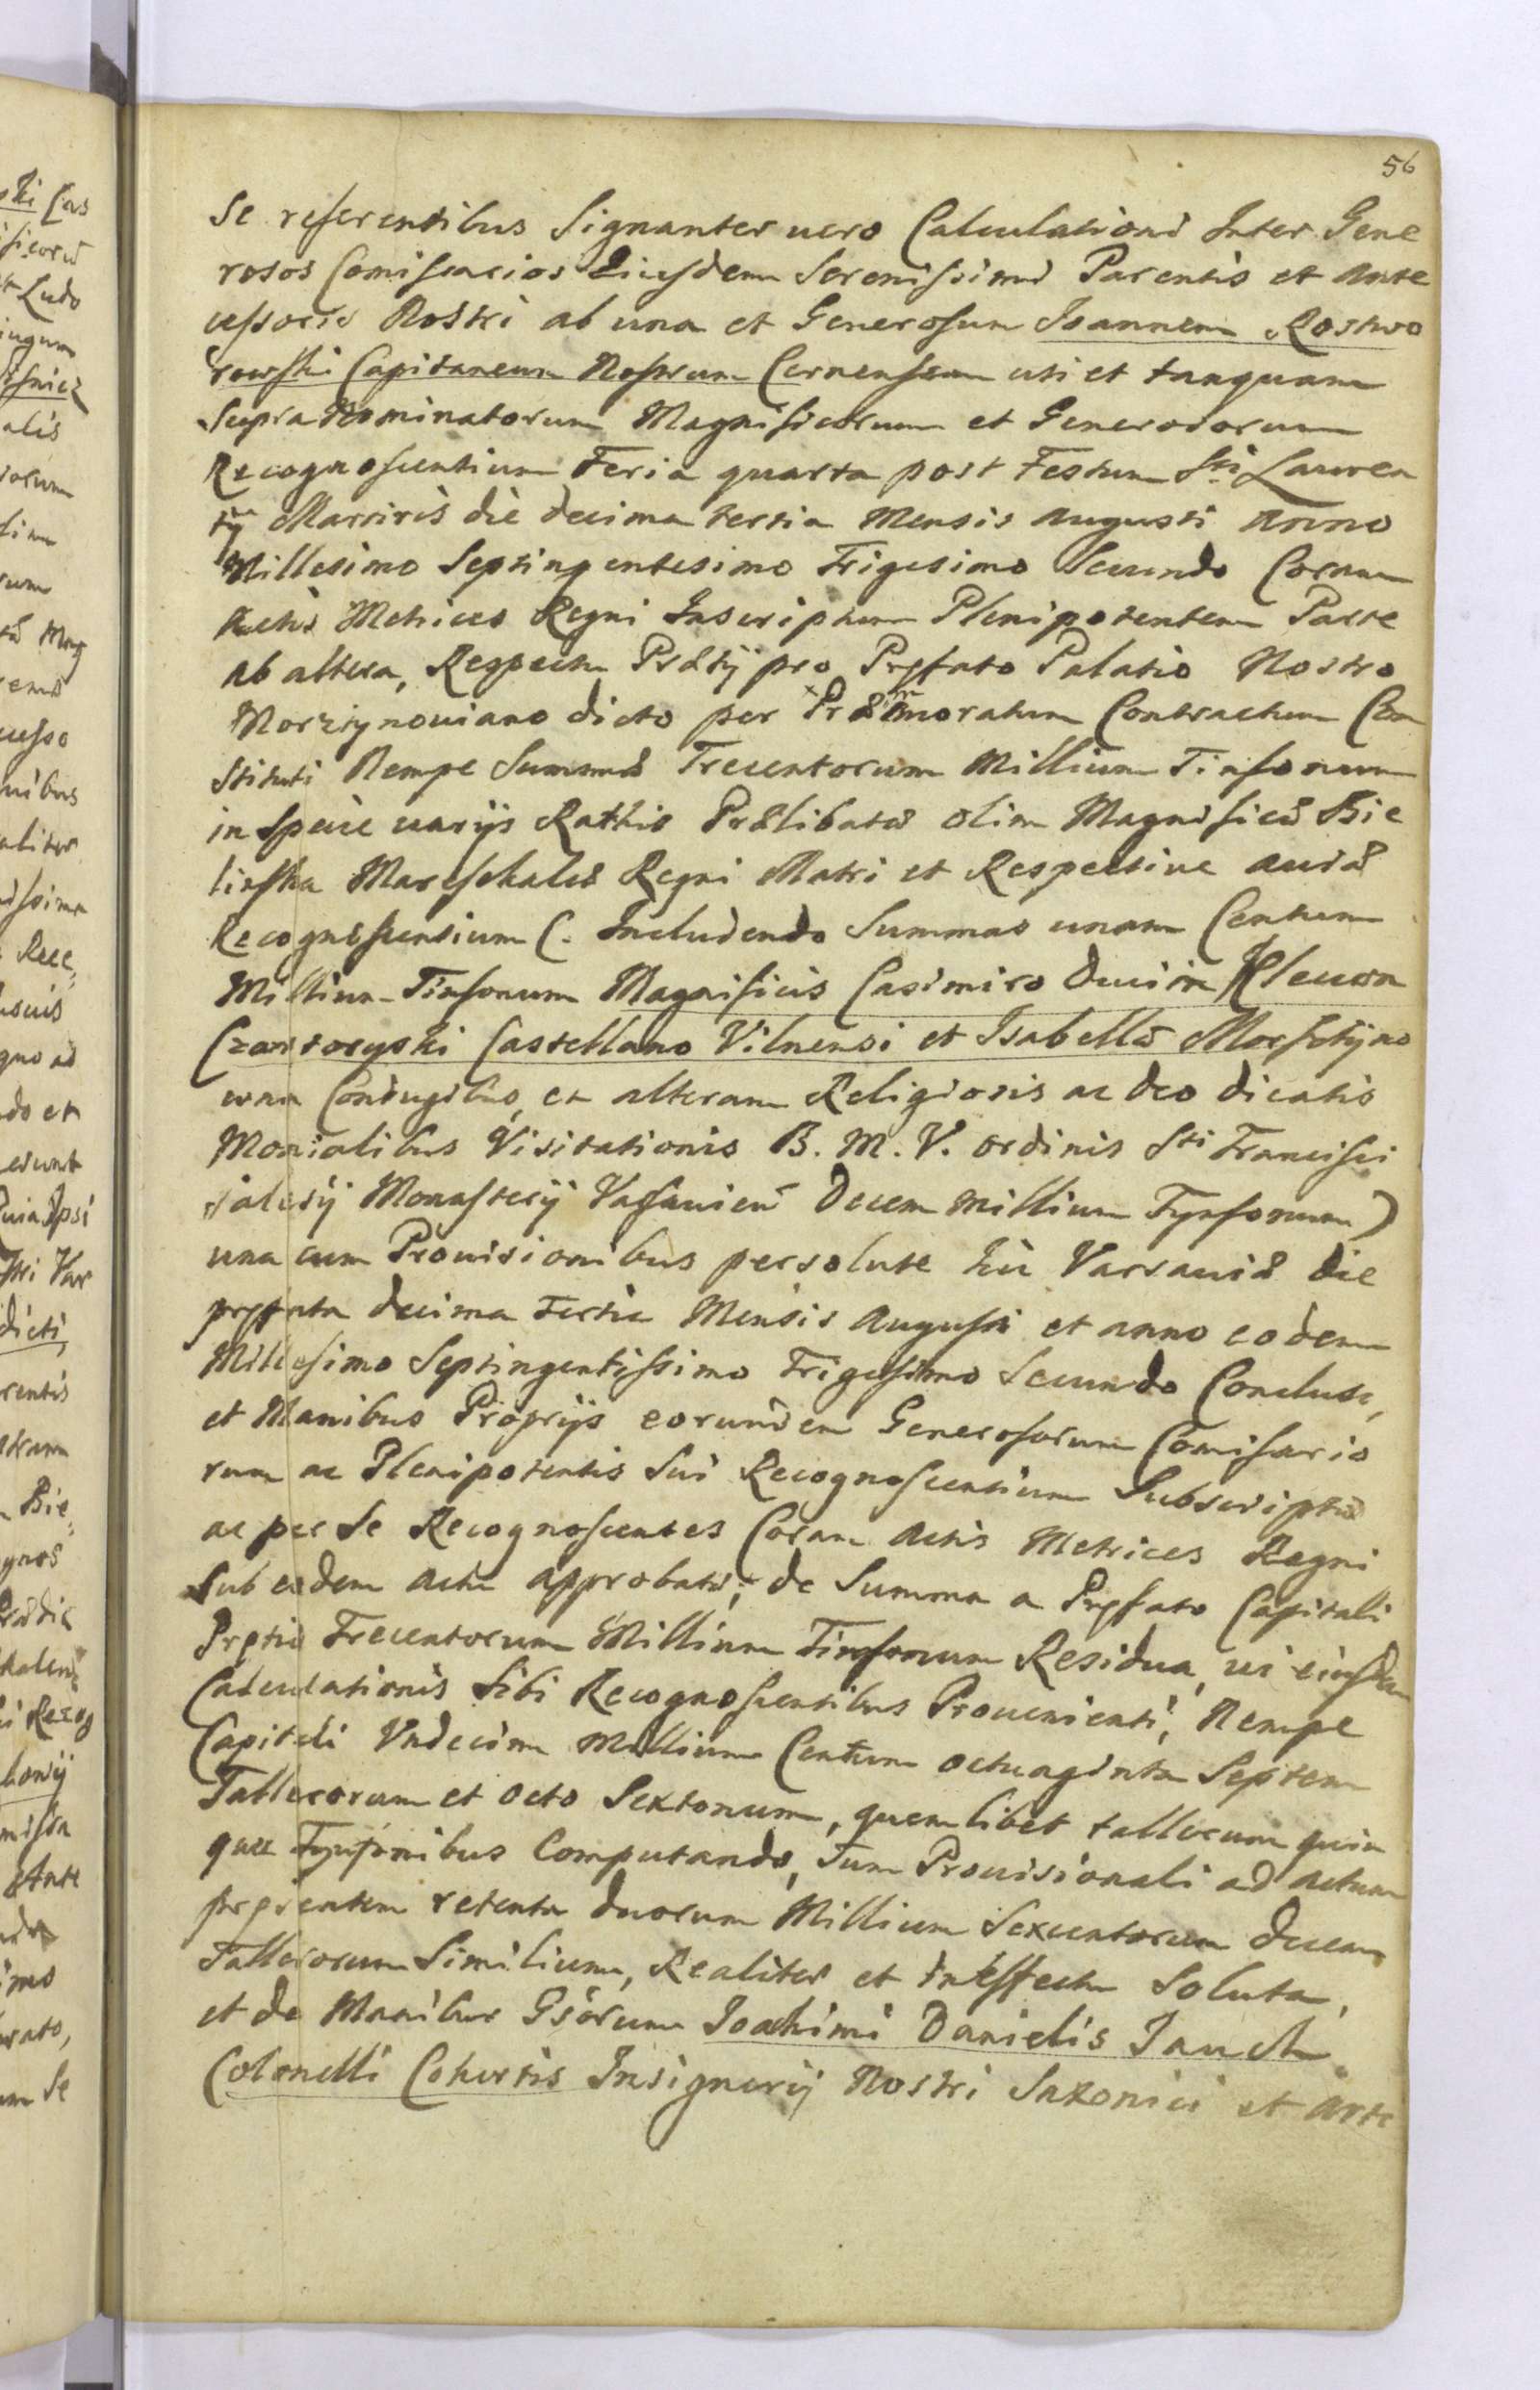 56
Se referentibus Signanter uero Calculationi Inter Gene
rosos Comissarios Eiusdem Serenissimi Parentis et Ante
cessoris Nostri ab una et Generosum Joannem Rostwo
rowski Capitaneum Nostrum Cernensem uti et tanquam
Supra Nominatorum Magnificorum et Generosorum
Recognoscentium Feria quarta post Festum Sti Lauren
tÿ Martiris die decima tertia Mensis Augusti Anno
Millesimo Septingentesimo Trigesimo Secundo Coram
Actis Metrices Regni Inscriptum Plenipotentem Parte
ab altera, Respectu Prætÿ pro Pręfato Palatio Nostro
Morztynouiano dicto per Præmoratum Contractum Con
stituti Nempe Summæ Trecentorum Millium Tinfonum
in Specie uarÿs Rathis Prælibatæ olim Magnificæ Bie
linska Mareschalcæ Regni Matri et Respectiue Auiæ
Recognoscentium (. Includendo Summas unam Centum
Millium Tinfonum Magnificis Casimiro Duci in Kleuan
Czartoryski Castellano Vilnensi et Isabellæ Morsztÿno
wna Coniugibus, et alteram Religiosis ac deo dicatis
Monialibus Visitationis B. M. V. ordinis Sti Francisci
Salesÿ Monasterÿ Varsauien Decem Millium Tynfonum)
una cum Prouisionibus persolute hic Varsauiæ die
pręfata decima Tertia Mensis Augusti et anno eodem
Millesimo Septingentissimo Trigessimo Secundo Conclusæ,
et Manibus Proprÿs eorundem Generosorum Comissario
rum ac Plenipotentis Sui Recognoscentium Subscriptæ
ac per Se Recognoscentes Coram Actis Metrices Regni
Sub eodem Actu approbatæ; de Summa a Pręfato Capitali
Prętio Trecentorum Millium Tinfonum Residua, ui eiusdem
Calculationis Sibi Recognoscentibus Prouenienti, Nempe
Capitali Vndecim Millium Centum octuaginta Septem
Tallerorum et octo Sextonum, quemlibet tallerum quin
que Tynfonibus Computando, Tum Prouisionali ad Actum
pręsentem retenta duorum Millium Sexcentorum Decem
Tallerorum Similium, Realiter et in effectu Soluta,
et de Manibus Gsorum Joachimi Danielis Jauch
Colonelli Cohortis Insignerÿ Nostri Saxonici et Arte